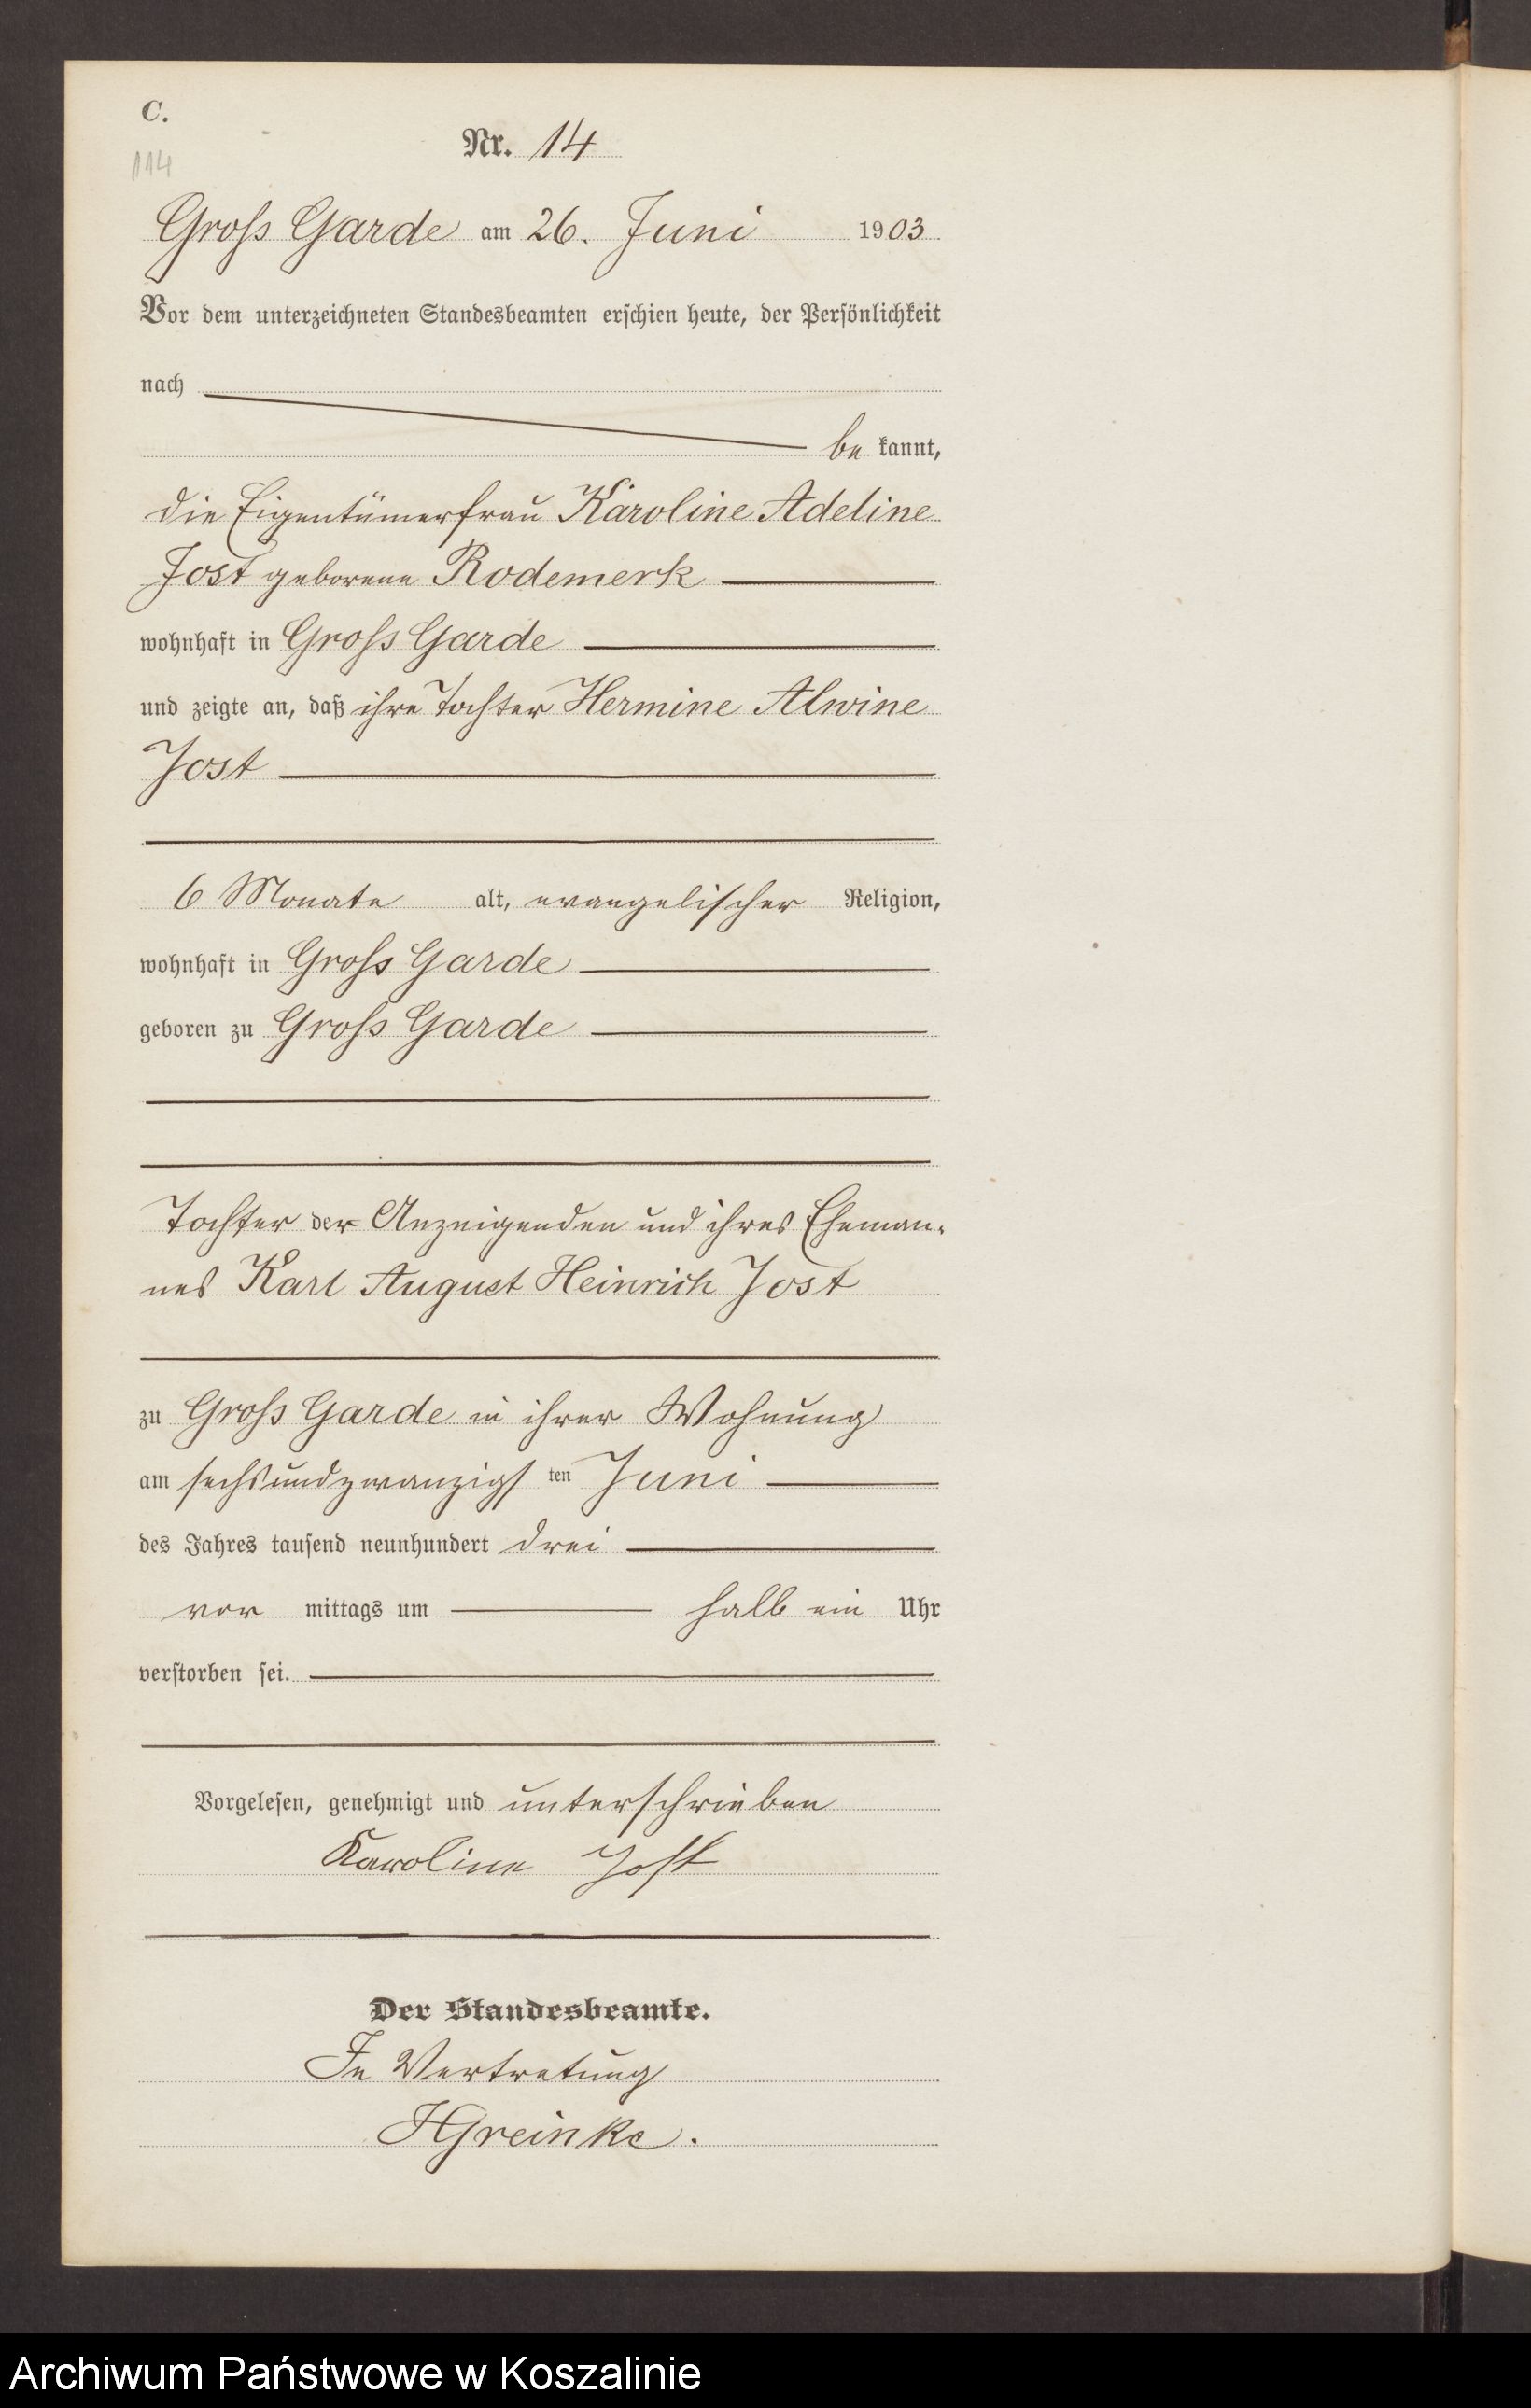 C.
114
Nr. 14
Gross Garde am 26. Juni 1903
Vor dem unterzeichneten Standesbeamten erschien heute, der Persönlichkeit
nach
be kannt,
die Eigentümerfrau Karoline Adeline
Jost geborene Rodemerk
wohnhaft in Gross Garde
und zeigte an, daß ihre Tochter Hermine Alwine
Jost
6 Monate alt, evangelischer Religion,
wohnhaft in Gross Garde
geboren zu Gross Garde
Tochter der Anzeigenden und ihres Eheman-
nes Karl August Heinrich Jost
zu Gross Garde in ihrer Wohnung
am sechsundzwanzigsten Juni
des Jahres tausend neunhundert drei
vor mittags um halb ein Uhr
verstorben sei.
Vorgelesen, genehmigt und unterschrieben
Karoline Jost
Der Standesbeamte.
In Vertretung
HGreinke.
Archiwum Państwowe w Koszalinie